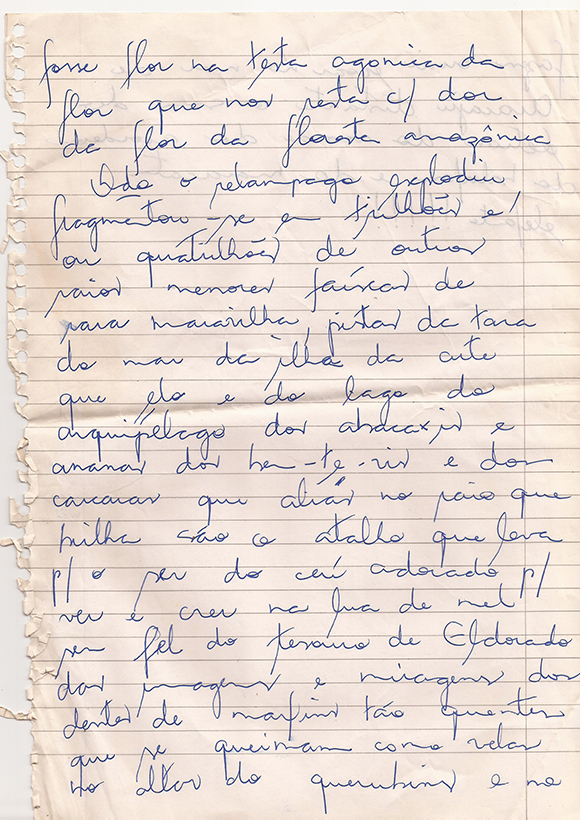 fosse flor na testa agonica da
flor que nos resta c/ dor
da flor da floresta amazônica
Qdo o relampago explodiu
fragmentou-se em trilhões e/
ou quatrilhões de outros
raios menores faíscas de
rara maravilha, pistas da tara
do mar da ilha da arte
que elo e do lago do
arquipélago dos abacaxis e
ananas dos bem-te-vis e dos
carcaras que aliás no raio que
brilha são o atalho que leva
p/ o ser do ceú adorado p/
ver e crer na lua de mel
sem fel do tesouro de Eldorado
das imagens e miragens dos
dentes de marfins tão quentes
que se queimam como velas
no altar do querubins e no